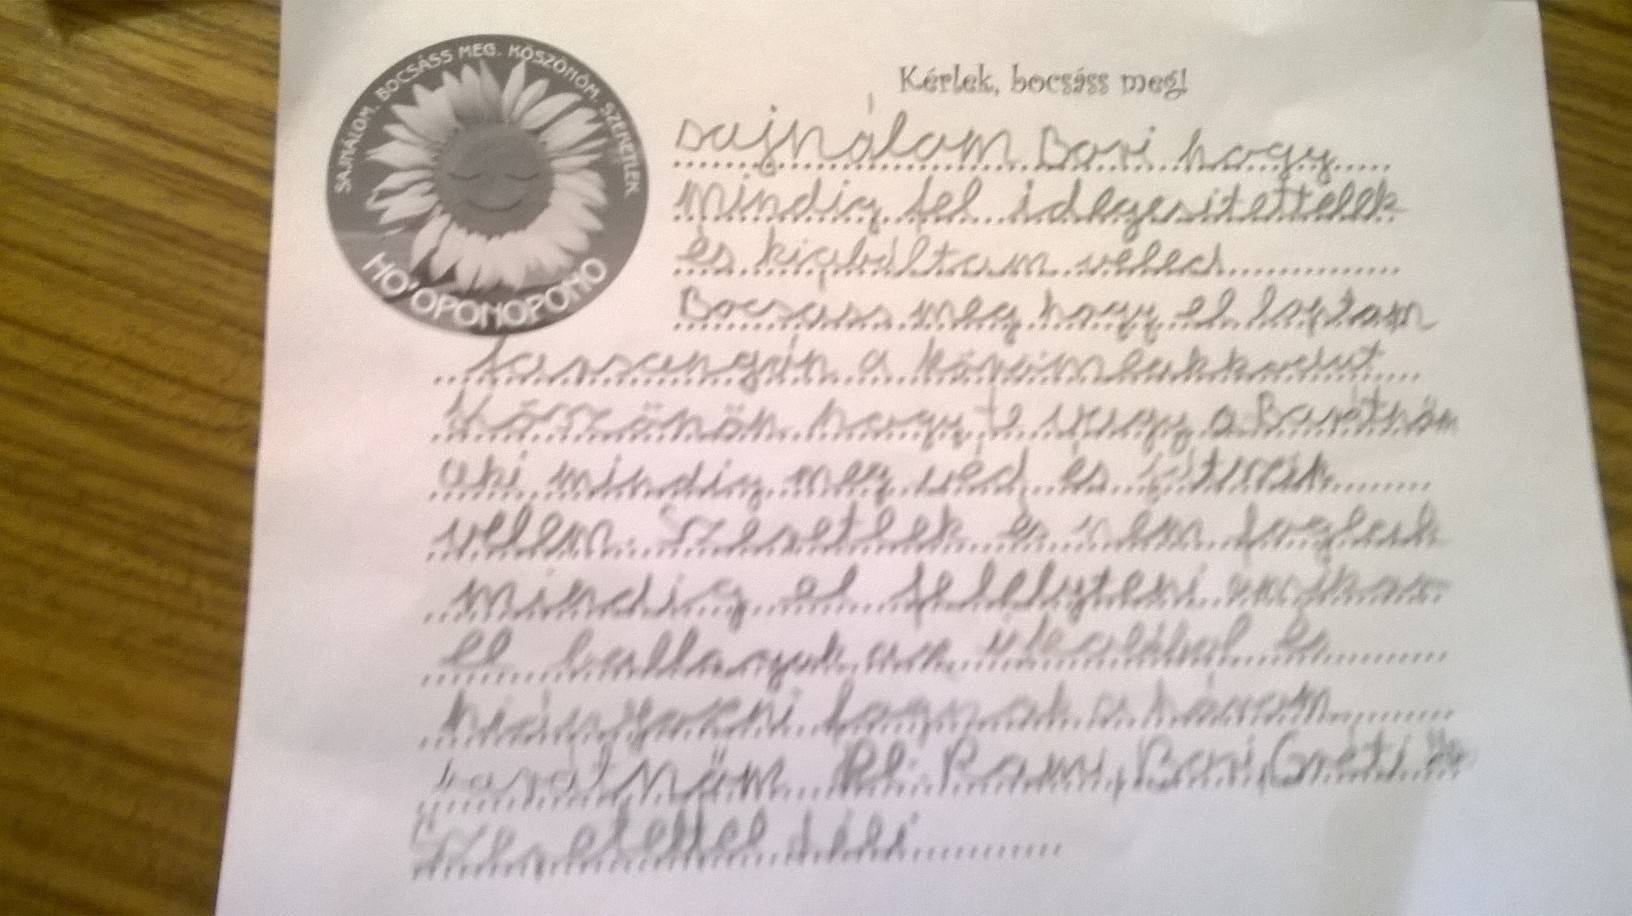 SAJNÁLOM. BOCSÁSS MEG. KÖSZÖNÖM. SZERETLEK
HO'OPONOPONO
Kérlek, bocsáss meg!
sajnálom Bori hogy
mindig fel idegesitettelek
és kiabáltam veled
Bocsáss meg hogy el loptam
a
Köszönöm hogy te vagy a Barátnőm
aki mindig meg véd és
velem. Szeretlek és nem foglak
mindig el felelyteni amikor
el ballagok az iskolábol és
hiányozni fognak a három
barátnőm Pl: Rami, Bori, Gréti
Szeretettel Lili